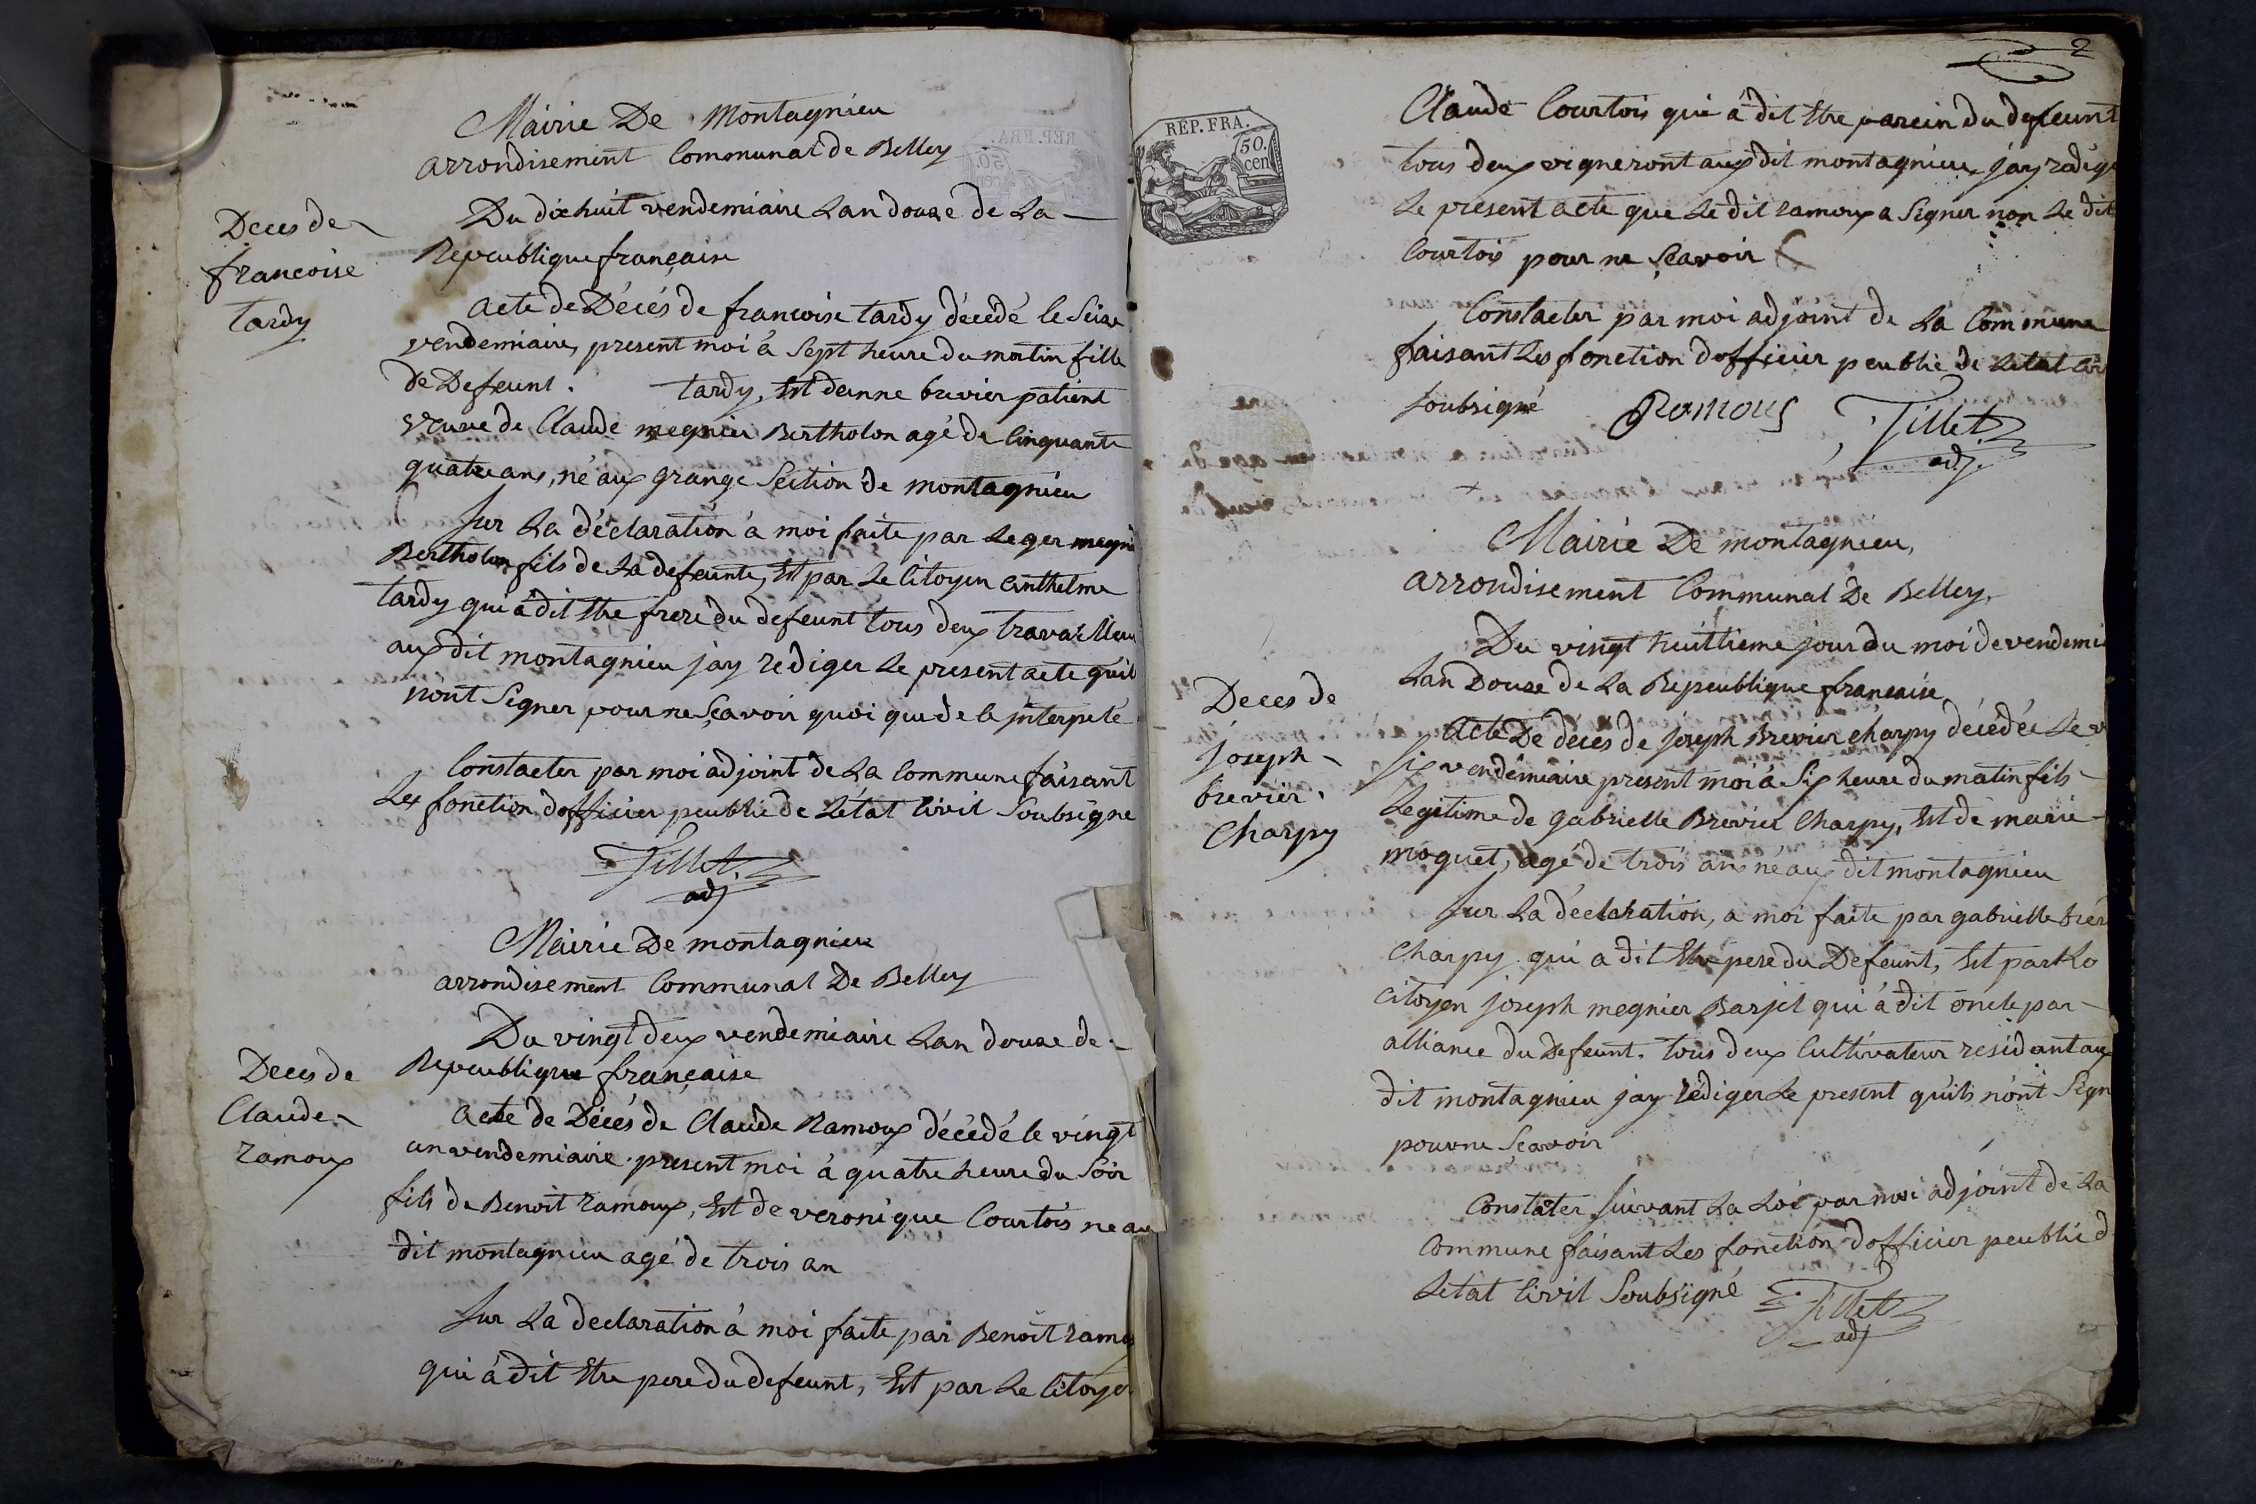 Mairie De Montagnieu
arrondisement Communal de Belley
Deces de
francoise
tardy
Du dixhuit vendemiaire Lan douze de La
Repeublique française
acte de Décés de francoise tardy décédé le Seize
vendemiaire, present moi à Sept heure du matin fille
de Defeunt. tardy, Est deanne brevier patient
veuve de Claude megnier Bertholon agé de Cinquante
quatre ans, né aux grange Section de montagnieu
Sur La déclaration à moi faite par Leger megni
Bertholon fils de La defeunte, Est par Le Citoyen anthelme
tardy qui à dit Etre frere du defeunt tous deux travailleur
aux dit montagnieu jay rediger Le present acte quil
nont Signer pour ne Sçavoir quoi que de le jnterpelé
Constaeter par moi adjoint de La Commune faisant
Les fonction dofficier peublic de Létat Civil Soubsigne
Tillet.
adj
Mairie De montagnieu
arrondisement Communal De Belley
Deces de
Claude
ramoux
Du vingt deux vendemiaire Lan douze de
Repeublique française
acte de Décés de Claude Ramoux décédé le vingt
un vendemiaire present moi à quatre heure du Soir
fils de Benoit ramoux, Est de veronique Courtois ne au
dit montagnieu agé de trois an
Sur La declaration à moi faite par Benoit ramo
qui à dit Etre pere du defeunt, Est par Le Citoyen
2
REP. FRA.
50.
cen
Claude Courtois qui à dit Etre parein du defeunt
tous deux vigneront aux dit montagnieu, jay redige
Le present acte que Le dit ramoux a Signer non Le dit
Courtois pour ne Scavoir
Constaeter par moi adjoint de La Commune
faisant Les fonction dofficier peublic de Letat Civ
Soubsigné Ramoux Tillet
adj.
Mairie De montagnieu,
arrondisement Communal De Belley,
Deces de
joseph
brevier
Charpy
Du vingt huittieme jour du moi de vendemi
Lan Douze de La Repeublique francaise
acte De deces de joseph Brevier charpy décédée Le v
Six vendémiaire present moi à Six heure du matin fils
Legitime de gabrielle Brevier Charpy, Est de marie
moquet, agé de trois ans né aux dit montagnieu
Sur La déclaration, a moi faite par gabrielle brev
Charpy qui a dit Etre pere du Defeunt, Est par Le
Citoyen joseph megnier Barjet qui à dit oncle par
alliance du Defeunt. tous deux Cultivateur residant aux
dit montagnieu jay rédiger Le present quils n'ont Sign
pour ne Scavoir
Constater Suivant La Loi par moi adjoint de La
Commune faisant Les fonction dofficier peublic d
Létat Civil Soubsigné Tillet
adj